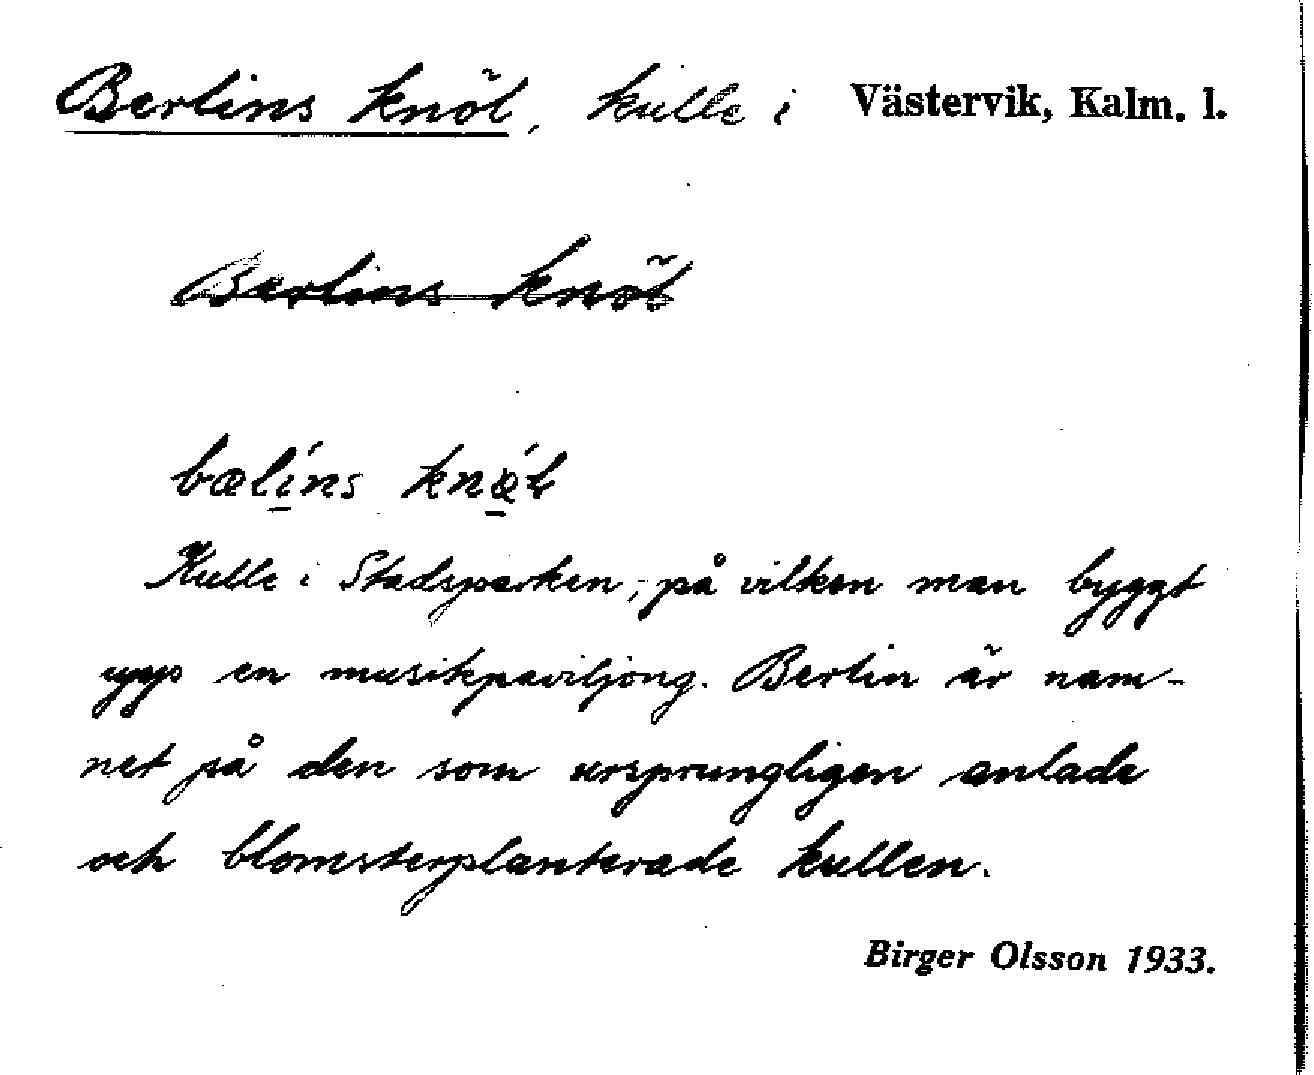 Berlins knöl, kulle i Västervik, Kalm. l.
Berlins knöl
bælíns knǿl
Kulle i Stadsparken, på vilken man byggt
upp en musikpaviljong. Berlin är nam-
net på den som ursprungligen anlade
och blomsterplanterade kullen.
Birger Olsson 1933.